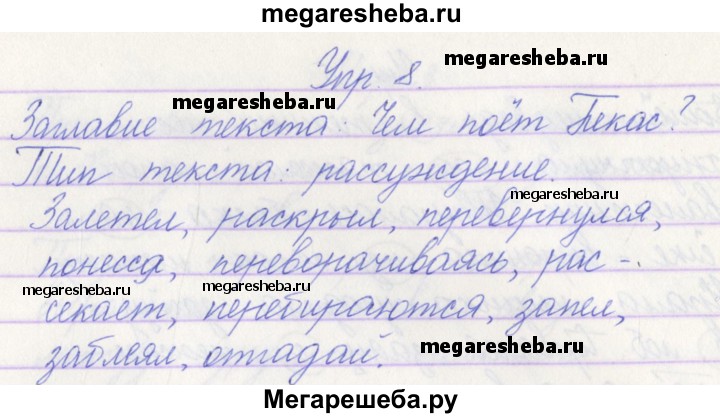 megaresheba.ru
Упр. 8.
megaresheba.ru
megaresheba.ru
Заглавие текста: Чем поёт Бекас?
Тип текста: рассуждение.
megaresheba.ru
Залетел, раскрыл, перевернулся,
понесся, переворачиваясь, рас-
megaresheba.ru
megaresheba.ru
секает, перебираются, запел,
заблеял, отгадай.
megaresheba.ru
Мегарешеба.ру